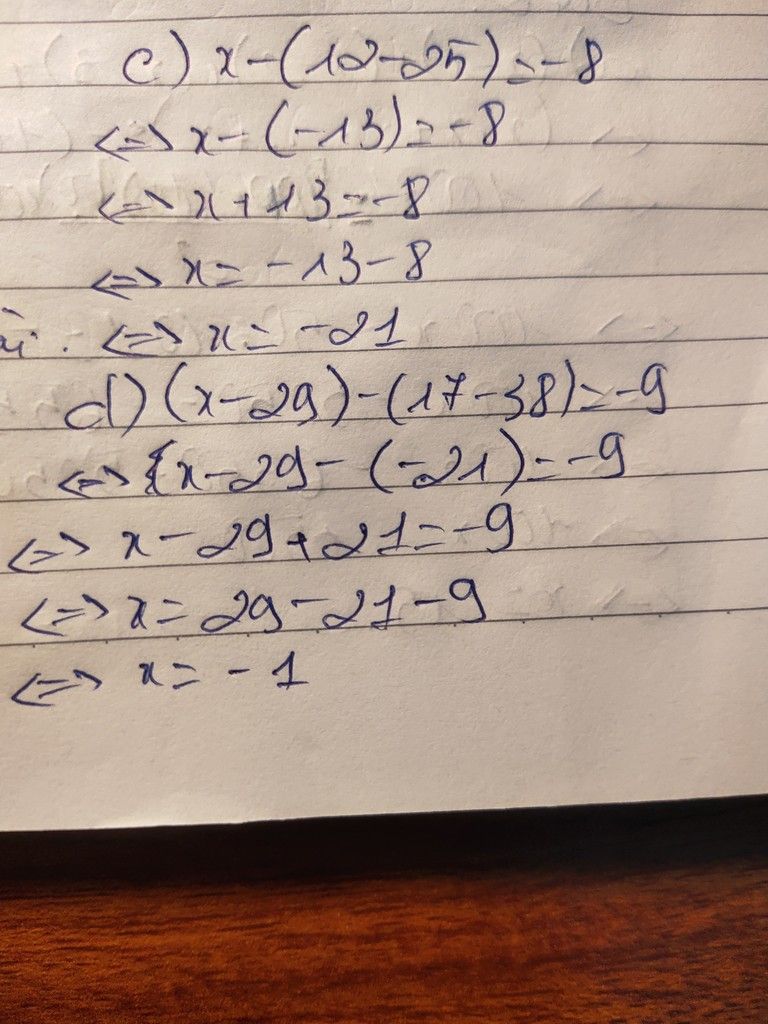 c) x-(12-25)=-8
<=> x-(-13)=-8
<=> x+13=-8
<=> x=-13-8
<=> x=-21
d) (x-29)-(17-38)=-9
<=> x-29-(-21)=-9
<=> x-29+21=-9
<=> x=29-21-9
<=> x=-1